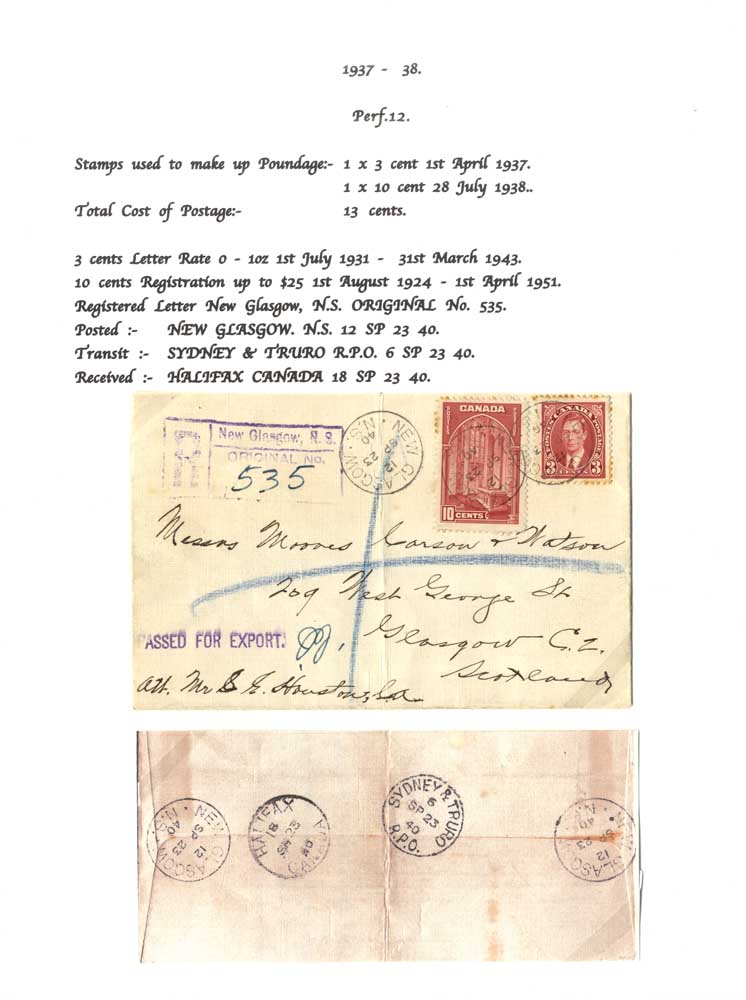 1937 - 38.
Perf.12.
Stamps used to make up Poundage:- 1 x 3 cent 1st April 1937.
1 x 10 cent 28 July 1938..
Total Cost of Postage:- 13 cents.
3 cents Letter Rate 0 - 1oz 1st July 1931 - 31st March 1943.
10 cents Registration up to $25 1st August 1924 - 1st April 1951.
Registered Letter New Glasgow, N.S. ORIGINAL No. 535.
Posted :- NEW GLASGOW. N.S. 12 SP 23 40.
Transit :- SYDNEY & TRURO R.P.O. 6 SP 23 40.
Received :- HALIFAX CANADA 18 SP 23 40.
R
New Glasgow, N. S.
ORIGINAL No.
535
NEW GLASGOW. N.S.
12
SP 23
40
CANADA
10 CENTS
POSTES CANADA POSTAGE
3 3
Messrs Moores Carson & Watson
209 West George St
Glasgow C. 2.
Scotland
ASSED FOR EXPORT.
Att. Mr E. Houston,
NEW GLASGOW. N.S.
12
SP 23
40
HALIFAX
18
SP 23
40
CANADA
SYDNEY & TRURO
6
SP 23
40
R.P.O.
NEW GLASGOW. N.S.
12
SP 23
40